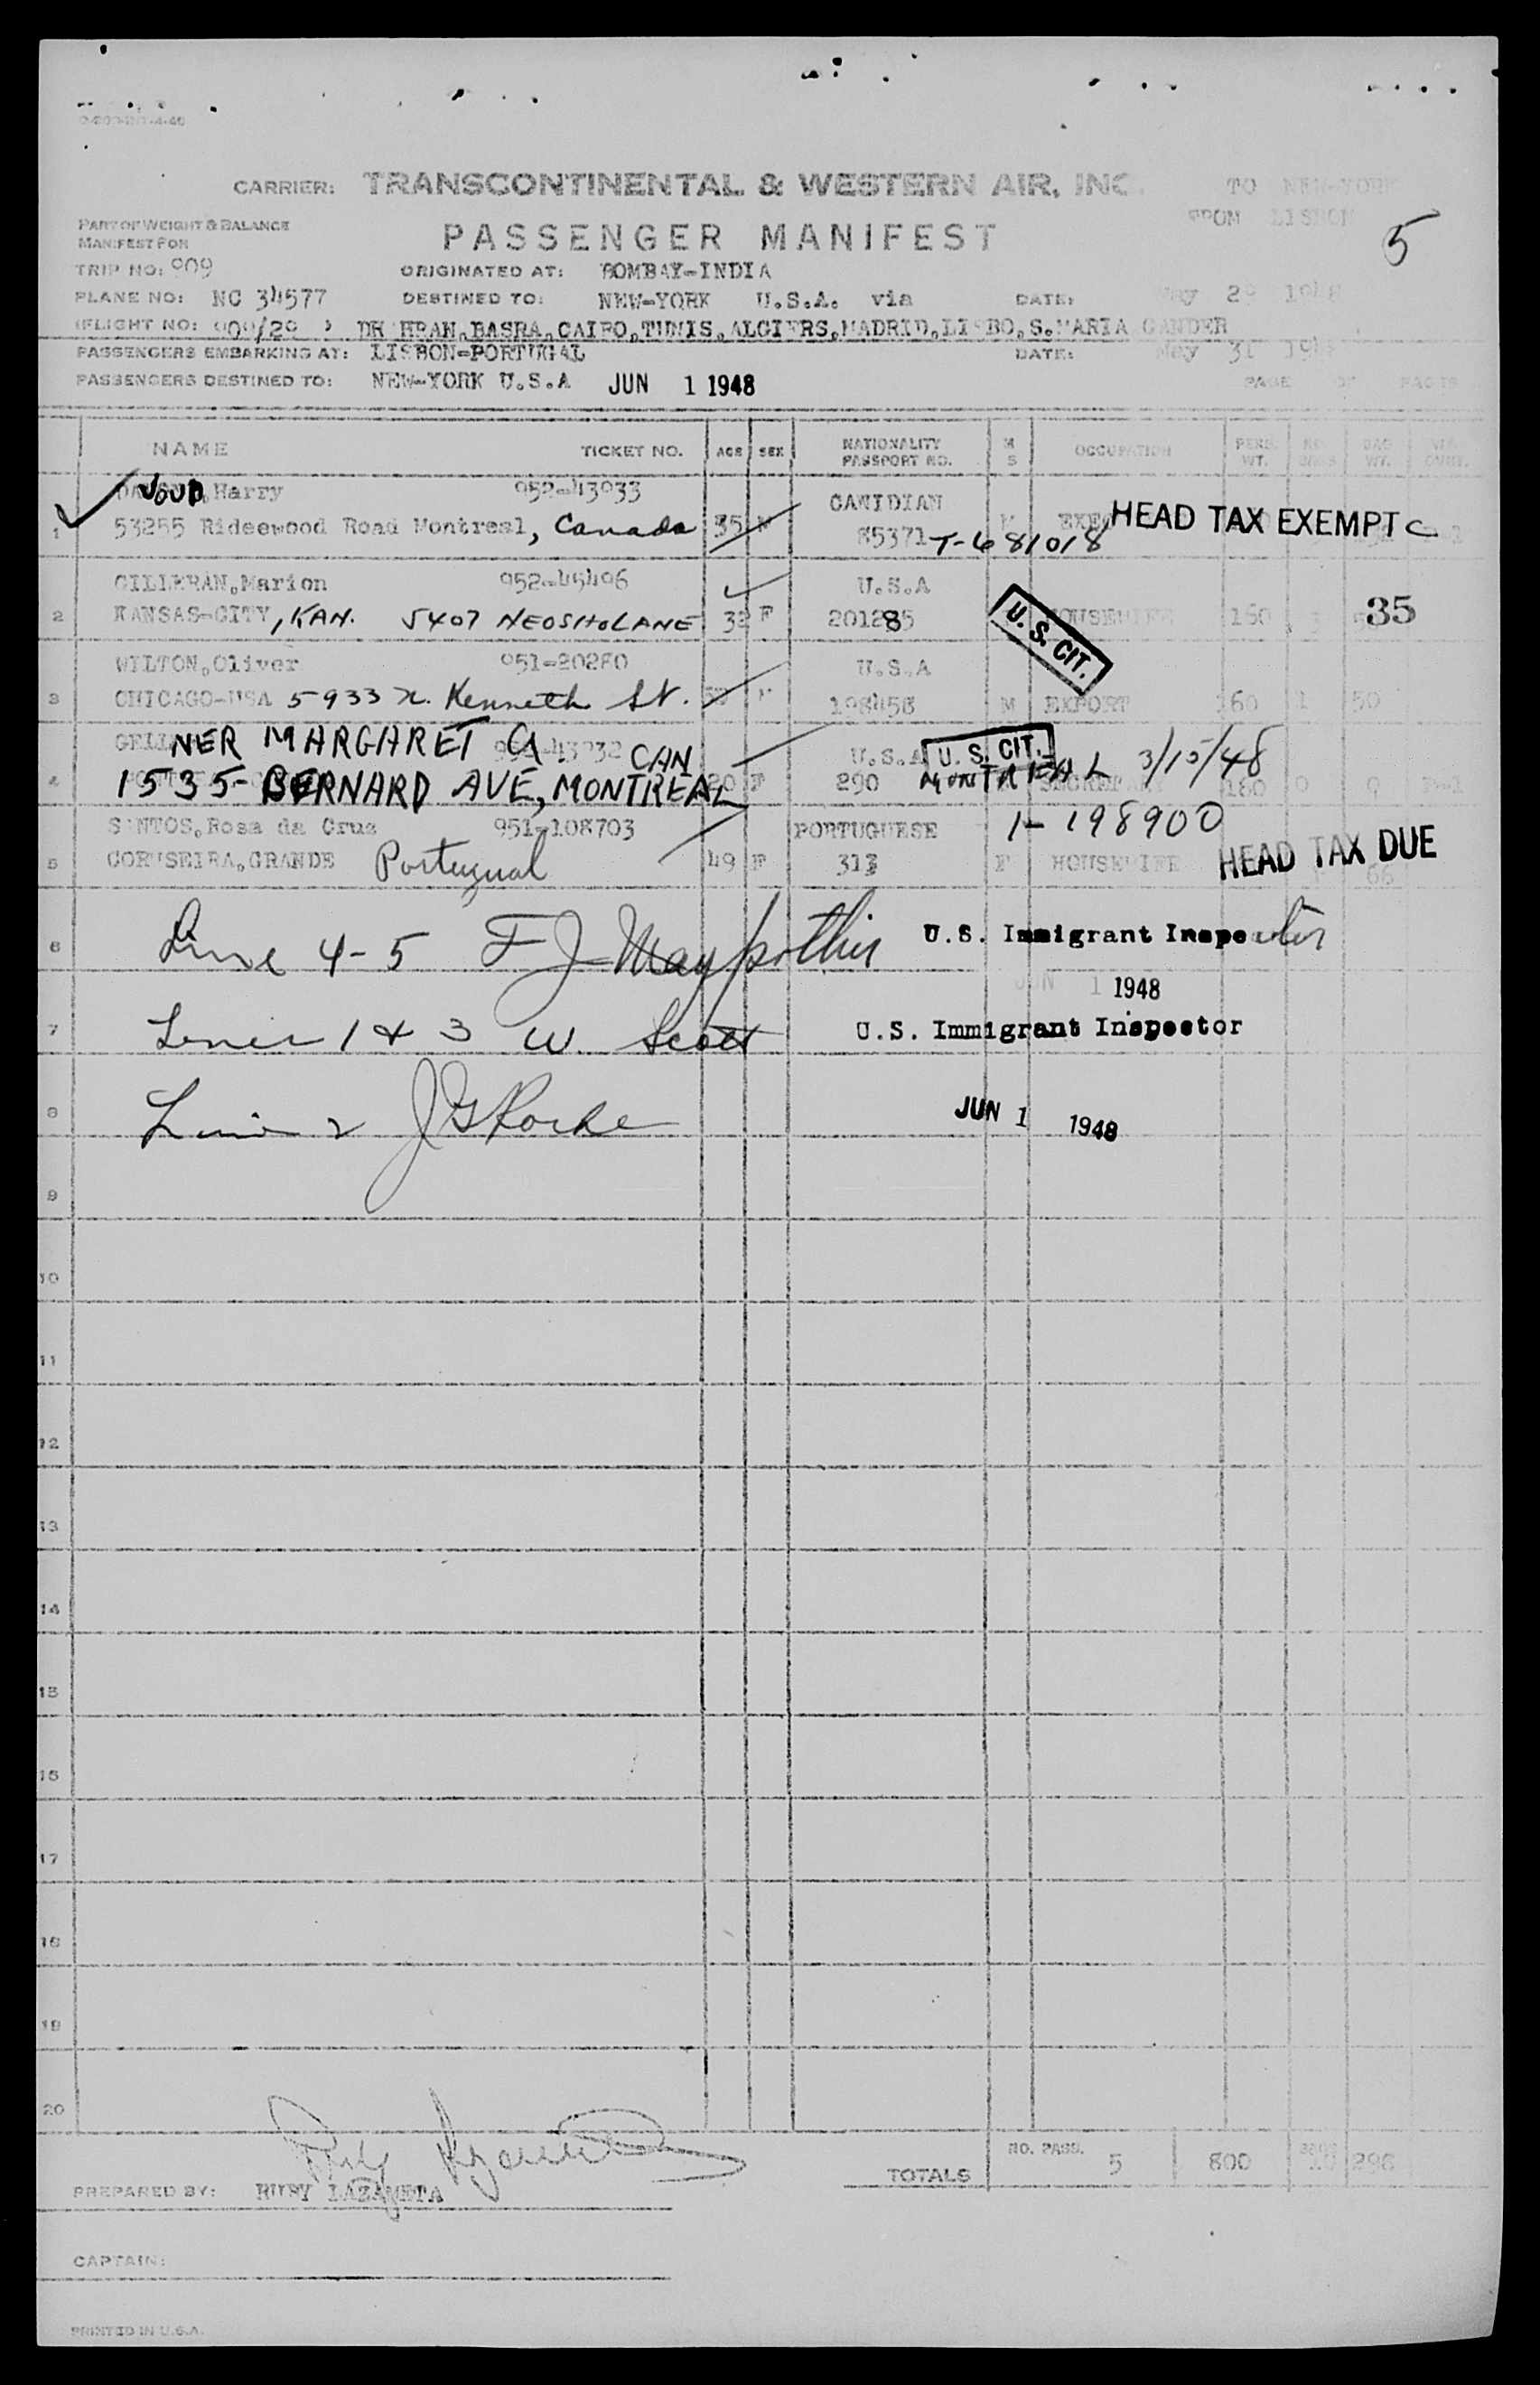 CARRIER: TRANSCONTINENTAL & WESTERN AIR, INC. TO NEW-YORK
PART OF WEIGHT & BALANCE FROM LISBON
MANIFEST FOR PASSENGER MANIFEST 5
TRIP NO: 909 ORIGINATED AT: BOMBAY-INDIA
PLANE NO: NC 34577 DESTINED TO: NEW-YORK U.S.A. via DATE: May 29 1948
(FLIGHT NO: 909/29 ) BASRA, CAIRO, TUNIS, ALGIERS, MADRID, S. MARIA GANDER
PASSENGERS EMBARKING AT: LISBON-PORTUGAL DATE: May 31 1948
PASSENGERS DESTINED TO: NEW-YORK U.S.A JUN 1 1948 PAGE OF PAGES
NAME TICKET NO. AGE SEX NATIONALITY PASSPORT NO. M S OCCUPATION PERS. WT. NO. BAGS BAG WT.
Harry 952-43933 CANIDIAN
1 53255 Rideewood Road Montreal, Canada 35 M 85371 T-681018 M HEAD TAX EXEMPT C
GILLERAN, Marion 952-45496 U.S.A
2 KANSAS-CITY, KAN. 5407 NEOSHO LANE 32 F 201285 HOUSEWIFE 160 35
U. S. CIT.
WILTON, Oliver 951-20280 U.S.A
3 CHICAGO-USA 5933 N. Kenneth St. 198456 M EXPORT 160 1 50
NER MARGARET G CAN U.S.A U. S. CIT. 3/15/48
4 1535- BERNARD AVE, MONTREAL 20 F 290 MONTREAL 160 0 0
SANTOS, Rosa da Cruz 951-108703 PORTUGUESE 1-198900
5 CORUSEIRA, GRANDE Portugual 49 F 313 F HOUSEWIFE HEAD TAX DUE 66
6 Line 4-5 F J U.S. Immigrant Inspector
JUN 1 1948
7 Lines 1 & 3 W. Scott U.S. Immigrant Inspector
8 Line 2 J G Rorke JUN 1 1948
9
10
11
12
13
14
15
16
17
18
19
20
TOTALS NO. PASS. 5 800 BAGS 296
PREPARED BY: RUBY
CAPTAIN:
PRINTED IN U.S.A.